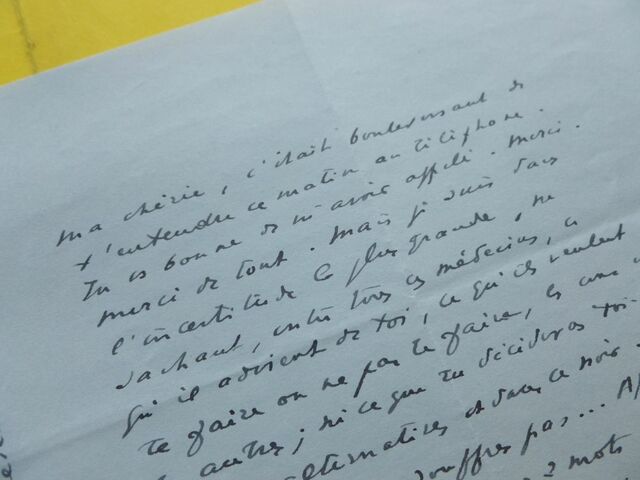 ma chérie, c'était bouleversant de
t'entendre ce matin au téléphone.
Tu es bonne de m'avoir appelé. Merci.
merci de tout. Mais je suis dans
l'incertitude la plus grande, ne
sachant, entre tous ces médecins, ce
qu'il advient de toi, ce qu'ils veulent
te faire ou ne pas te faire, les uns
autres; ni ce que tu décideras toi-
alternatives et dans ce noir
souffres pas... 
2 mots